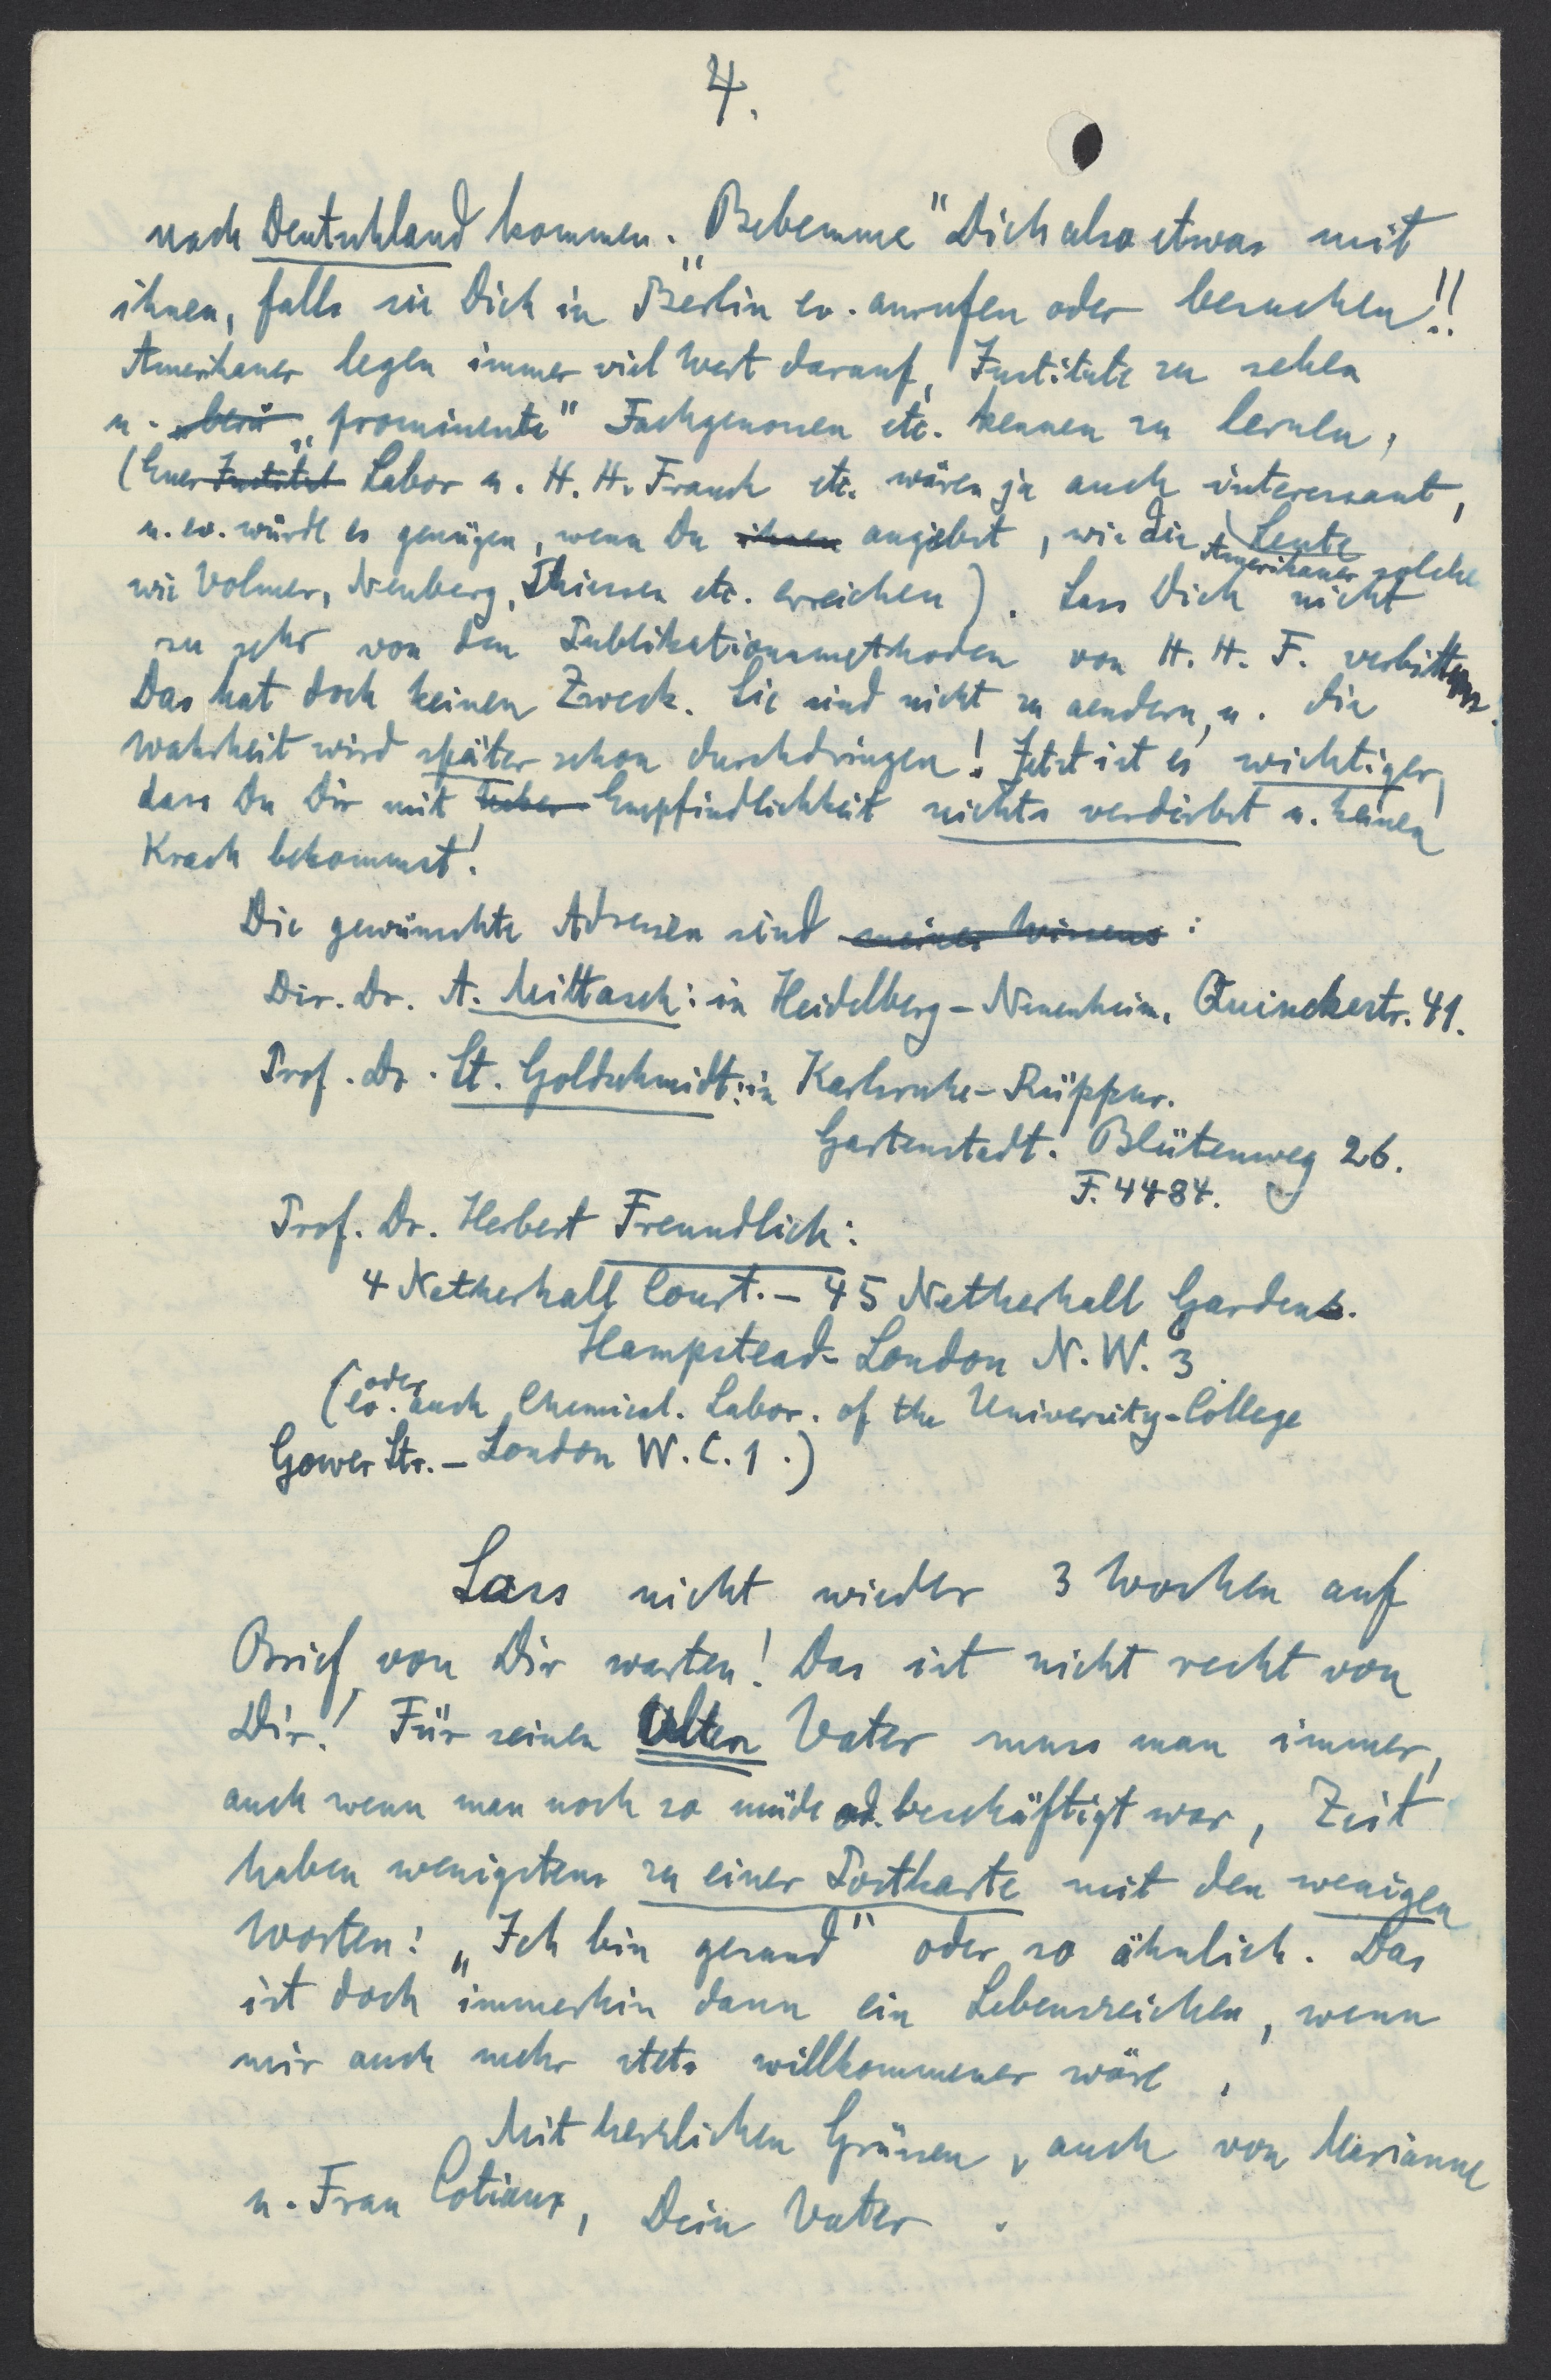 4.
nach Deutschland kommen. „Bebemme" Dich also etwas mit
ihnen, falls sie Dich in Berlin ev. anrufen oder besuchen!!
Amerikaner legen immer viel Wert darauf, Institute zu sehen
u. „berü „prominente" Fachgenossen etc. kennen zu lernen,
(Euer Institut Labor u. H. H. Franck etc. wären ja auch interessant,
u. ev. würde es genügen, wenn Du ihnen angiebst, wie die Amerikaner solche Leute
wie Volmer, Neuberg, Thiessen etc. erreichen). Lass Dich nicht
zu sehr von den Publikationsmethoden von H. H. F. verbittern.
Das hat doch keinen Zweck. Sie sind nicht zu aendern, u. die
Wahrheit wird später schon durchdringen! Jetzt ist es wichtiger,
dass Du Dir mit Empfindlichkeit nichts verdirbst u. keinen
Krach bekommst!
Die gewünschte Adressen sind meines Wissens:
Dir. Dr. A. Mittasch: in Heidelberg-Neuenheim, Quinckestr. 41.
Prof. Dr. St. Goldschmidt: in Karlsruhe-Rüppur.
Gartenstadt. Blütenweg 26.
F. 4484.
Prof. Dr. Herbert Freundlich:
4 Netherhall Court. – 45 Netherhall Gardens.
Hampstead- London N.W. 3
(ev. oder auch Chemical. Labor. of the University-College
Gower Str. – London W.C. 1.)
Lass nicht wieder 3 Wochen auf
Brief von Dir warten! Das ist nicht recht von
Dir! Für seinen alten Vater muss man immer,
auch wenn man noch so müde od. beschäftigt war, Zeit
haben wenigstens zu einer Postkarte mit den wenigen
Worten: „Ich bin gesund" oder so ähnlich. Das
ist doch immerhin dann ein Lebenszeichen, wenn
mir auch mehr stets willkommener wäre.
Mit herzlichen Grüssen, auch von Marianne
u. Frau Cotiaux, Dein Vater.